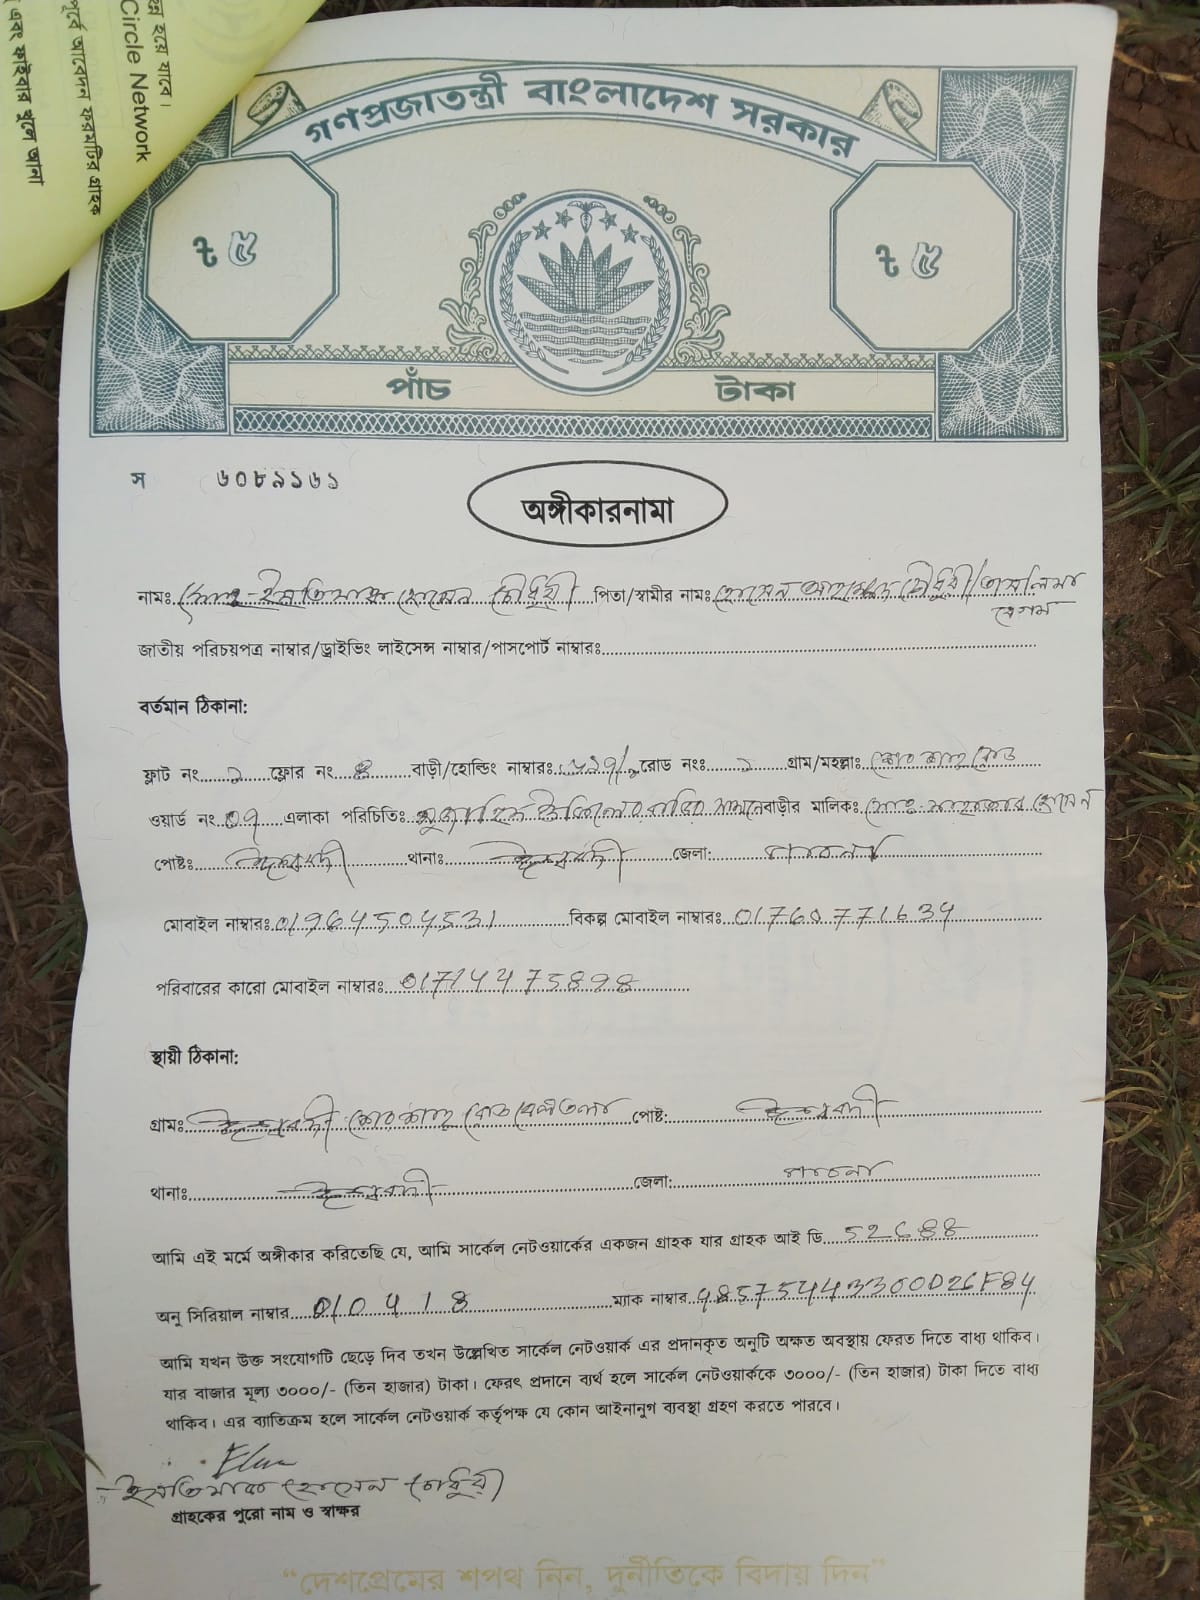 ন্ন হয়ে যাবে।
Circle Network
পূর্বে আবেদন ফরমটির গ্রাহক
এবং ফাইবার খুলে আনা
গণপ্রজাতন্ত্রী বাংলাদেশ সরকার
৳ ৫ ৳ ৫
পাঁচ টাকা
স ৬০৮৯১৬১
অঙ্গীকারনামা
নামঃ মোঃ ইসতিয়াক হোসেন চৌধুরী পিতা/স্বামীর নামঃ হোসেন আহম্মেদ চৌধুরী/তাসলিমা
বেগম
জাতীয় পরিচয়পত্র নাম্বার/ড্রাইভিং লাইসেন্স নাম্বার/পাসপোর্ট নাম্বারঃ
বর্তমান ঠিকানা:
ফ্লাট নং ফ্লোর নং ৪ বাড়ী/হোল্ডিং নাম্বারঃ রোড নংঃ গ্রাম/মহল্লাঃ রোড
ওয়ার্ড নং ০৭ এলাকা পরিচিতিঃ উকিলের বাড়ির সামনে বাড়ীর মালিকঃ মোঃ হোসেন
পোষ্টঃ ঈশ্বরদী থানাঃ ঈশ্বরদী জেলা: পাবনা
মোবাইল নাম্বারঃ 01964504531 বিকল্প মোবাইল নাম্বারঃ 01760771634
পরিবারের কারো মোবাইল নাম্বারঃ
স্থায়ী ঠিকানা:
গ্রামঃ ঈশ্বরদী রোড বেলতলা পোষ্ট: ঈশ্বরদী
থানাঃ ঈশ্বরদী জেলা: পাবনা
আমি এই মর্মে অঙ্গীকার করিতেছি যে, আমি সার্কেল নেটওয়ার্কের একজন গ্রাহক যার গ্রাহক আই ডি
অনু সিরিয়াল নাম্বার ম্যাক নাম্বার
আমি যখন উক্ত সংযোগটি ছেড়ে দিব তখন উল্লেখিত সার্কেল নেটওয়ার্ক এর প্রদানকৃত অনুটি অক্ষত অবস্থায় ফেরত দিতে বাধ্য থাকিব।
যার বাজার মূল্য ৩০০০/- (তিন হাজার) টাকা। ফেরৎ প্রদানে ব্যর্থ হলে সার্কেল নেটওয়ার্ককে ৩০০০/- (তিন হাজার) টাকা দিতে বাধ্য
থাকিব। এর ব্যতিক্রম হলে সার্কেল নেটওয়ার্ক কর্তৃপক্ষ যে কোন আইনানুগ ব্যবস্থা গ্রহণ করতে পারবে।
ইসতিয়াক হোসেন চৌধুরী
গ্রাহকের পুরো নাম ও স্বাক্ষর
“দেশপ্রেমের শপথ নিন, দুর্নীতিকে বিদায় দিন”